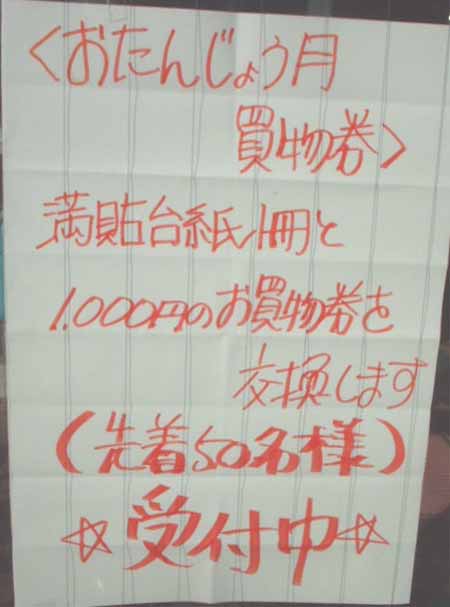 <おたんじょう月
買物券>
満貼台紙1冊と
1.000円のお買物券を
交換します
(先着50名様)
☆受付中☆